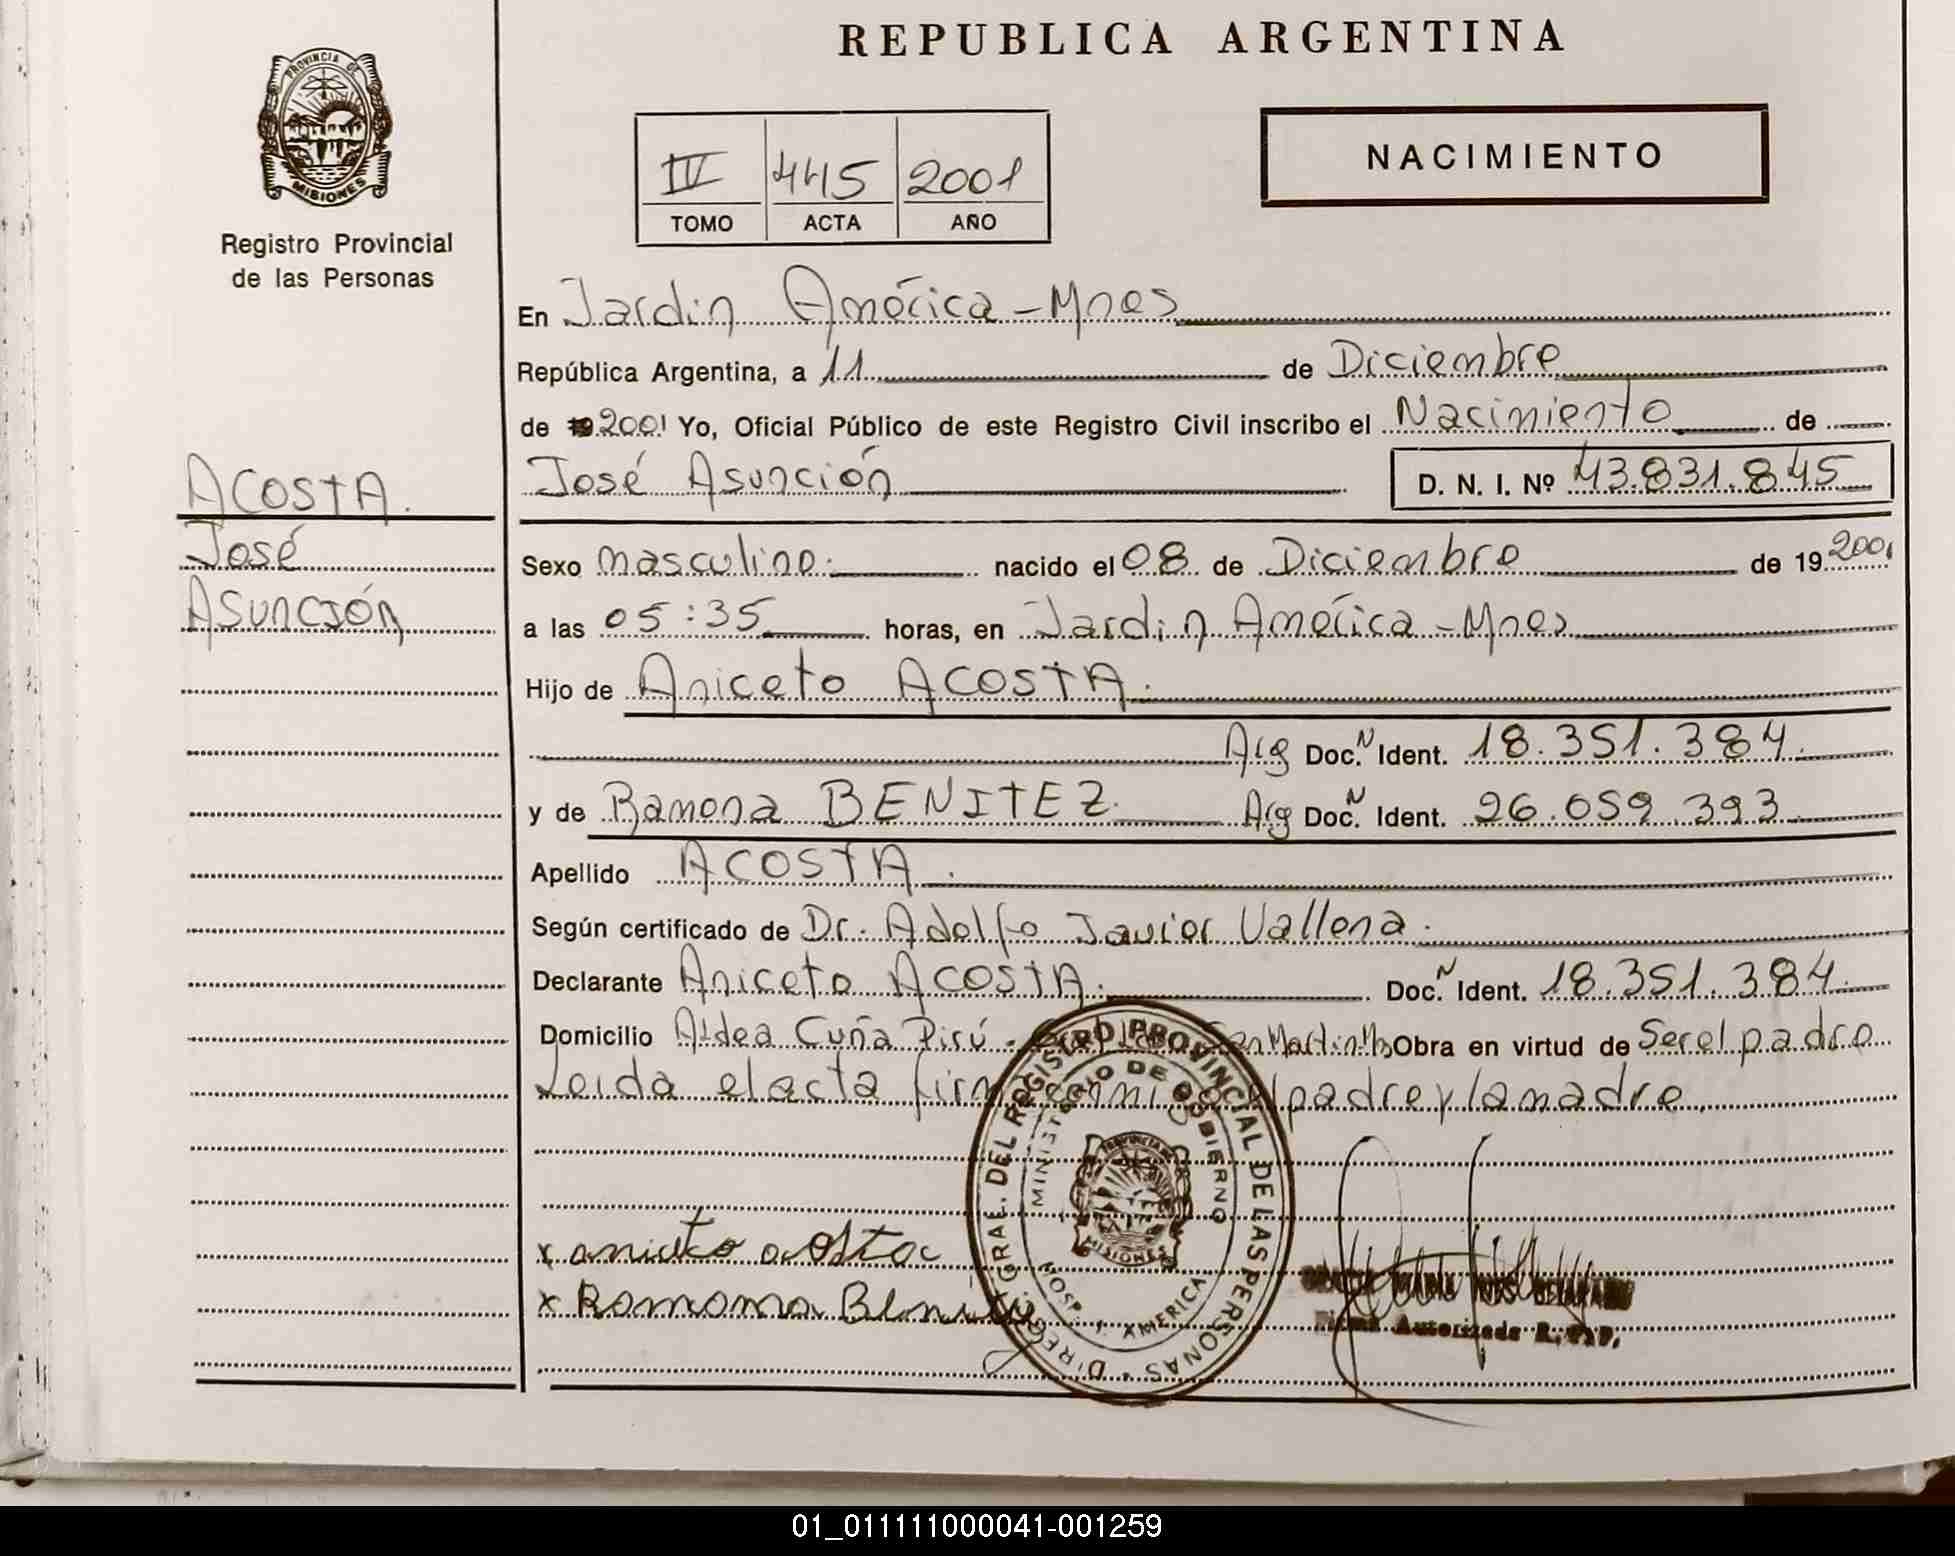 REPUBLICA ARGENTINA
PROVINCIA DE MISIONES
Registro Provincial
de las Personas
IV 445 2001
TOMO ACTA AÑO
NACIMIENTO
En Jardín América - Mnes
República Argentina, a 11 de Diciembre
de 19 2001 Yo, Oficial Público de este Registro Civil inscribo el Nacimiento de
José Asunción D. N. I. Nº 43.831.845
ACOSTA.
José
Asunción
Sexo masculino. nacido el 08 de Diciembre de 19 2001
a las 05:35 horas, en Jardín América - Mnes
Hijo de Aniceto ACOSTA.
Arg Doc. N Ident. 18.351.384.
y de Ramona BENITEZ. Arg Doc. N Ident. 26.059.393
Apellido ACOSTA.
Según certificado de Dr. Adolfo Javier Vallena.
Declarante Aniceto ACOSTA. Doc. N Ident. 18.351.384.
Domicilio Aldea Cuña Pirú - San Martin Mnes Obra en virtud de Ser el padre
Leida el acta firma conmigo el padre y la madre.
x aniceto acosta
x Ramona Benitez
DIREC. GRAL. DEL REGISTRO PROVINCIAL DE LAS PERSONAS
MINISTERIO DE GOBIERNO
PROVINCIA DE MISIONES
HOSP. J. AMERICA
Firma Autorizada R.P.P.
01_011111000041-001259